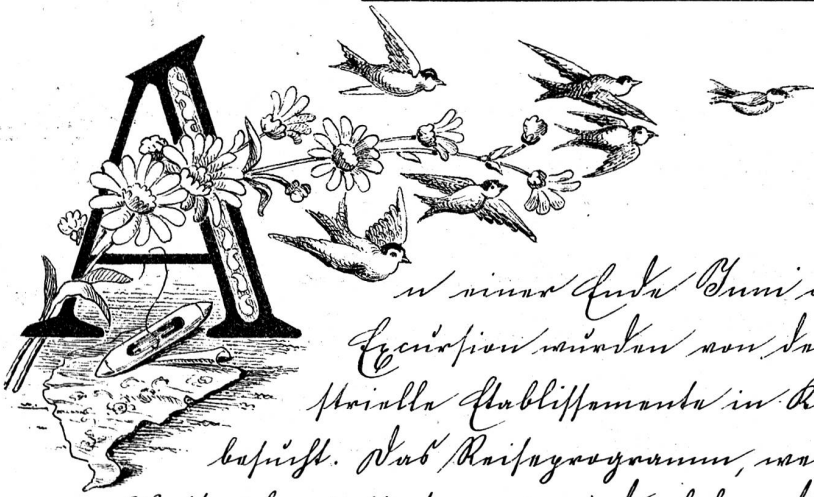 An einer Ende Juni
Excursion wurden von de
strielle Etablissemente in K
besucht. Das Reiseprogramm, we